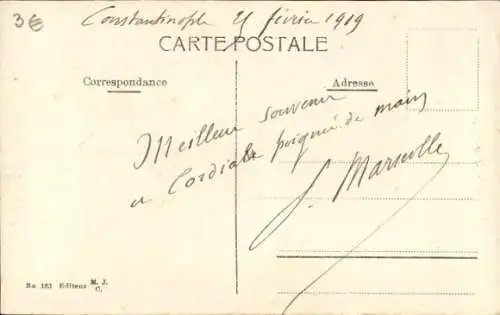 3€
Constantinople 25 février 1919
CARTE POSTALE
Correspondance
Adresse
Meilleur souvenir
et Cordiale poignée de main
S. Marseille
No 183 Editeur M. J. C.